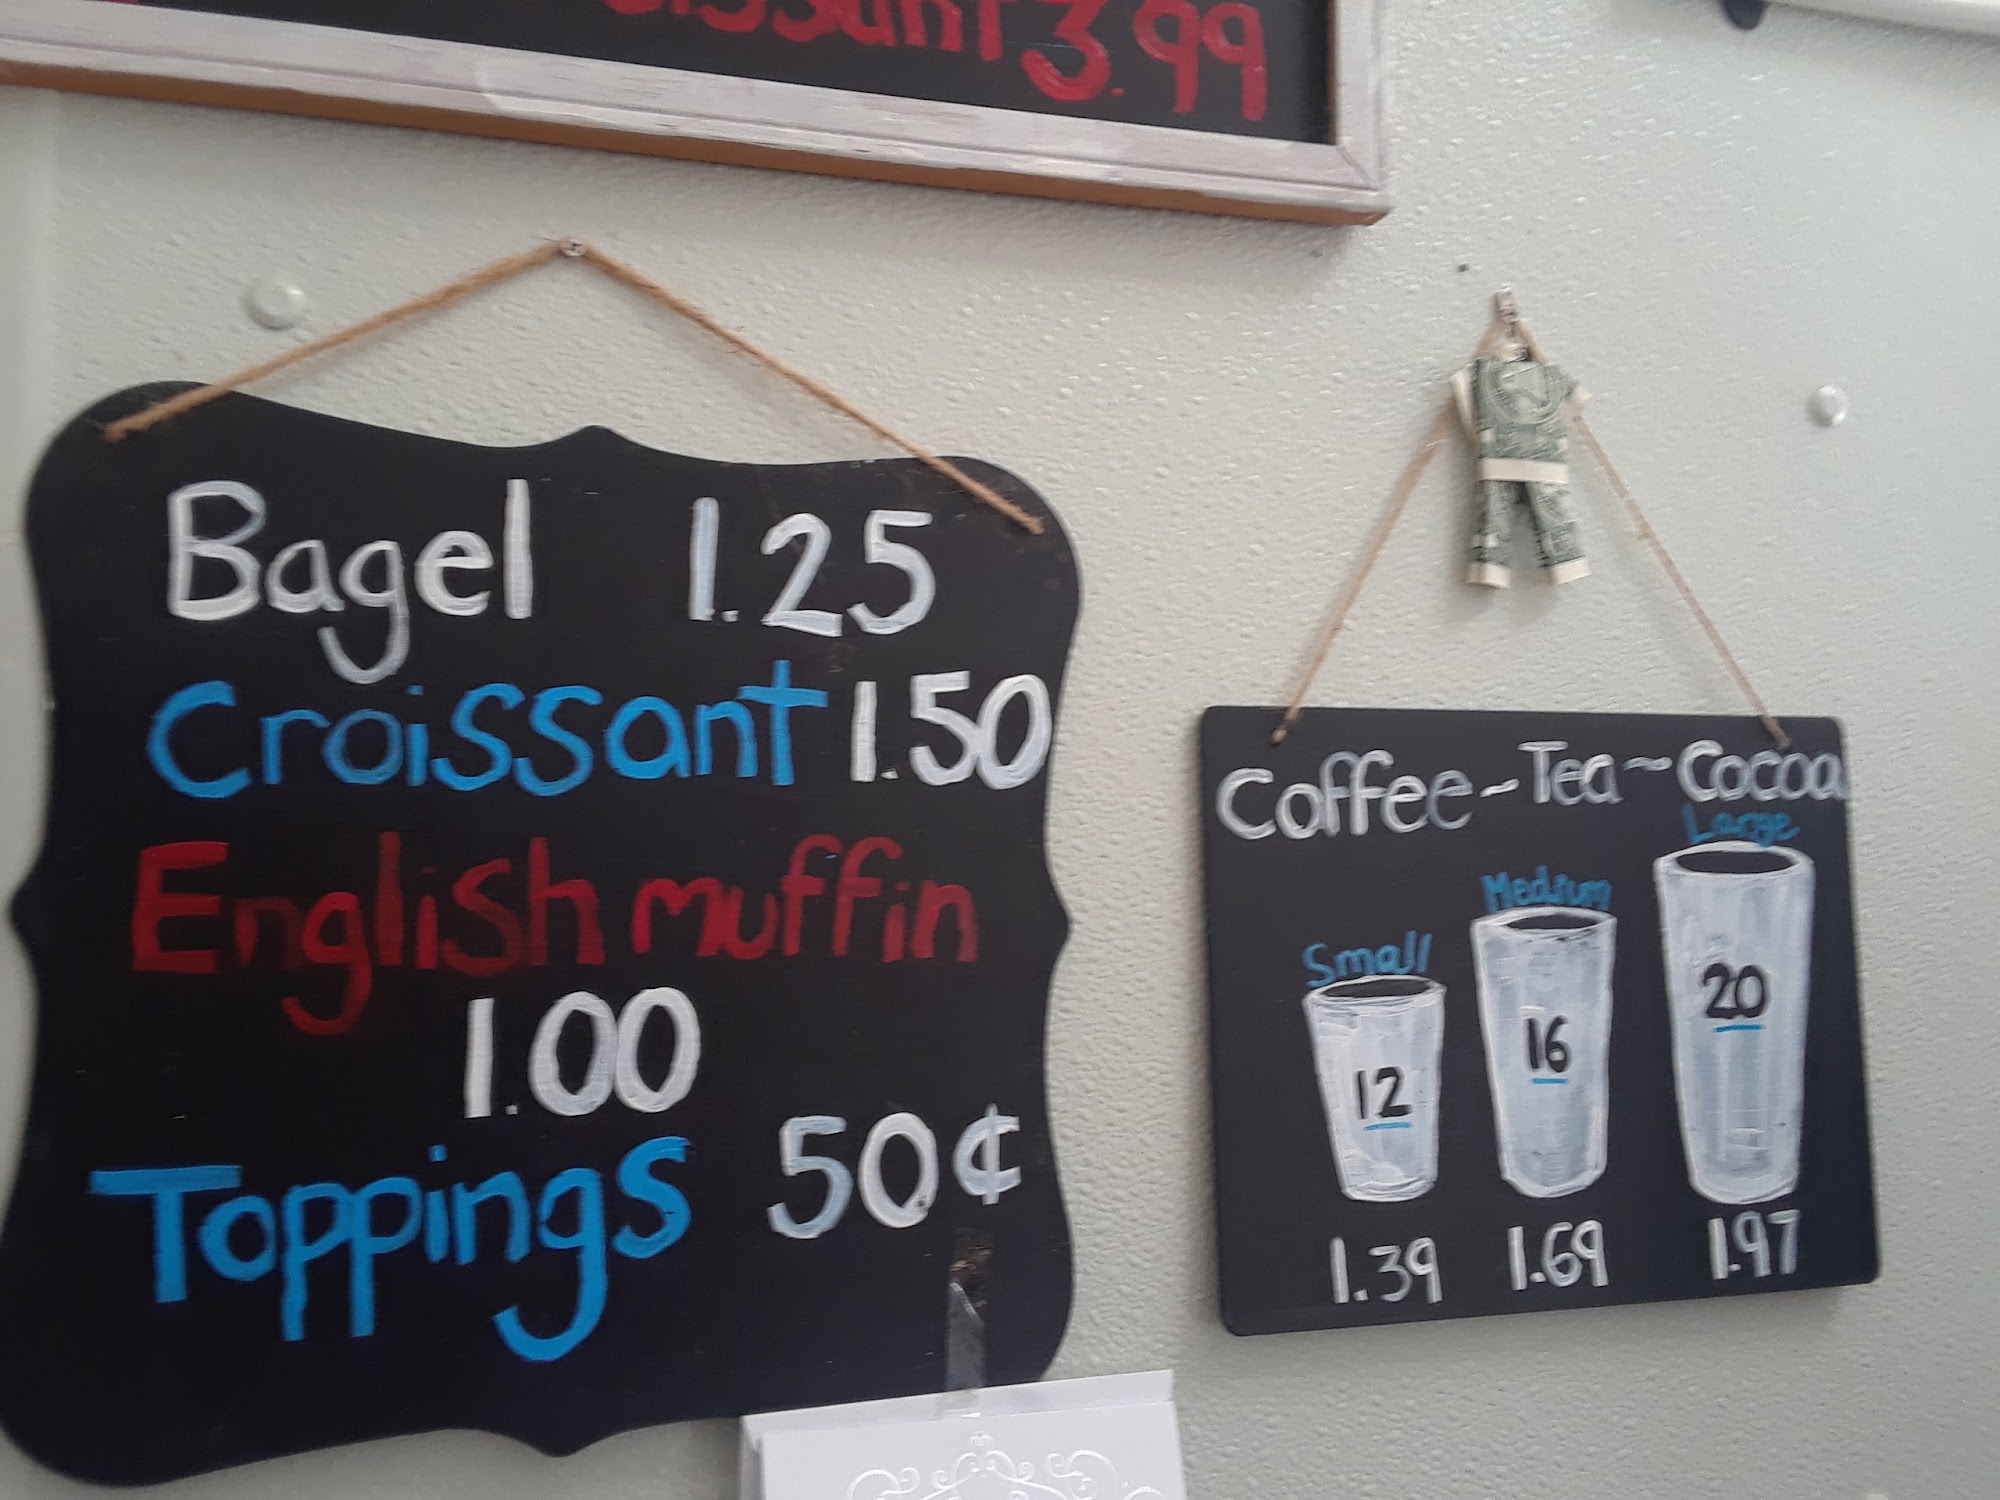 3.99
Bagel 1.25
Croissant 1.50
English muffin
1.00
Toppings 50¢
Coffee ~ Tea ~ Cocoa
Small Medium Large
12 16 20
1.39 1.69 1.97